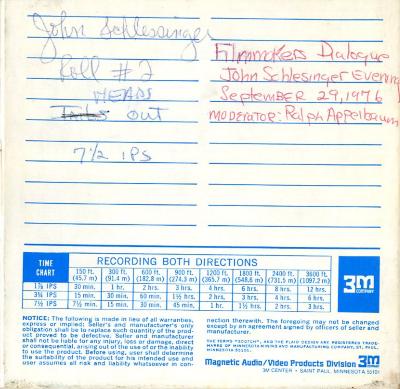 John Schlessinger
Roll #2
HEADS
Tails out
7 1/2 IPS
Filmmakers Dialogue
John Schlesinger Evening
September 29, 1976
MODERATOR: Ralph Appelbaum
TIME CHART
RECORDING BOTH DIRECTIONS
150 ft. (45,7 m) 300 ft. (91,4 m) 600 ft. (182,8 m) 900 ft. (274,3 m) 1200 ft. (365,7 m) 1800 ft. (548,6 m) 2400 ft. (731,5 m) 3600 ft. (1097,2 m)
1⅞ IPS 30 min. 1 hr. 2 hrs. 3 hrs. 4 hrs. 6 hrs. 8 hrs. 12 hrs.
3¾ IPS 15 min. 30 min. 60 min. 1½ hrs. 2 hrs. 3 hrs. 4 hrs. 6 hrs.
7½ IPS 7½ min. 15 min. 30 min. 45 min. 1 hr. 1½ hrs. 2 hrs. 3 hrs.
3M
COMPANY
NOTICE: The following is made in lieu of all warranties,
express or implied: Seller's and manufacturer's only
obligation shall be to replace such quantity of the prod-
uct proved to be defective. Seller and manufacturer
shall not be liable for any injury, loss or damage, direct
or consequential, arising out of the use of or the inability
to use the product. Before using, user shall determine
the suitability of the product for his intended use and
user assumes all risk and liability whatsoever in con-
nection therewith. The foregoing may not be changed
except by an agreement signed by officers of seller and
manufacturer.
THE TERMS "SCOTCH", AND THE PLAID DESIGN ARE REGISTERED TRADE-
MARKS OF MINNESOTA MINING AND MANUFACTURING COMPANY, ST. PAUL,
MINNESOTA 55101.
Magnetic Audio/Video Products Division
3M CENTER • SAINT PAUL, MINNESOTA 55101
3M
COMPANY